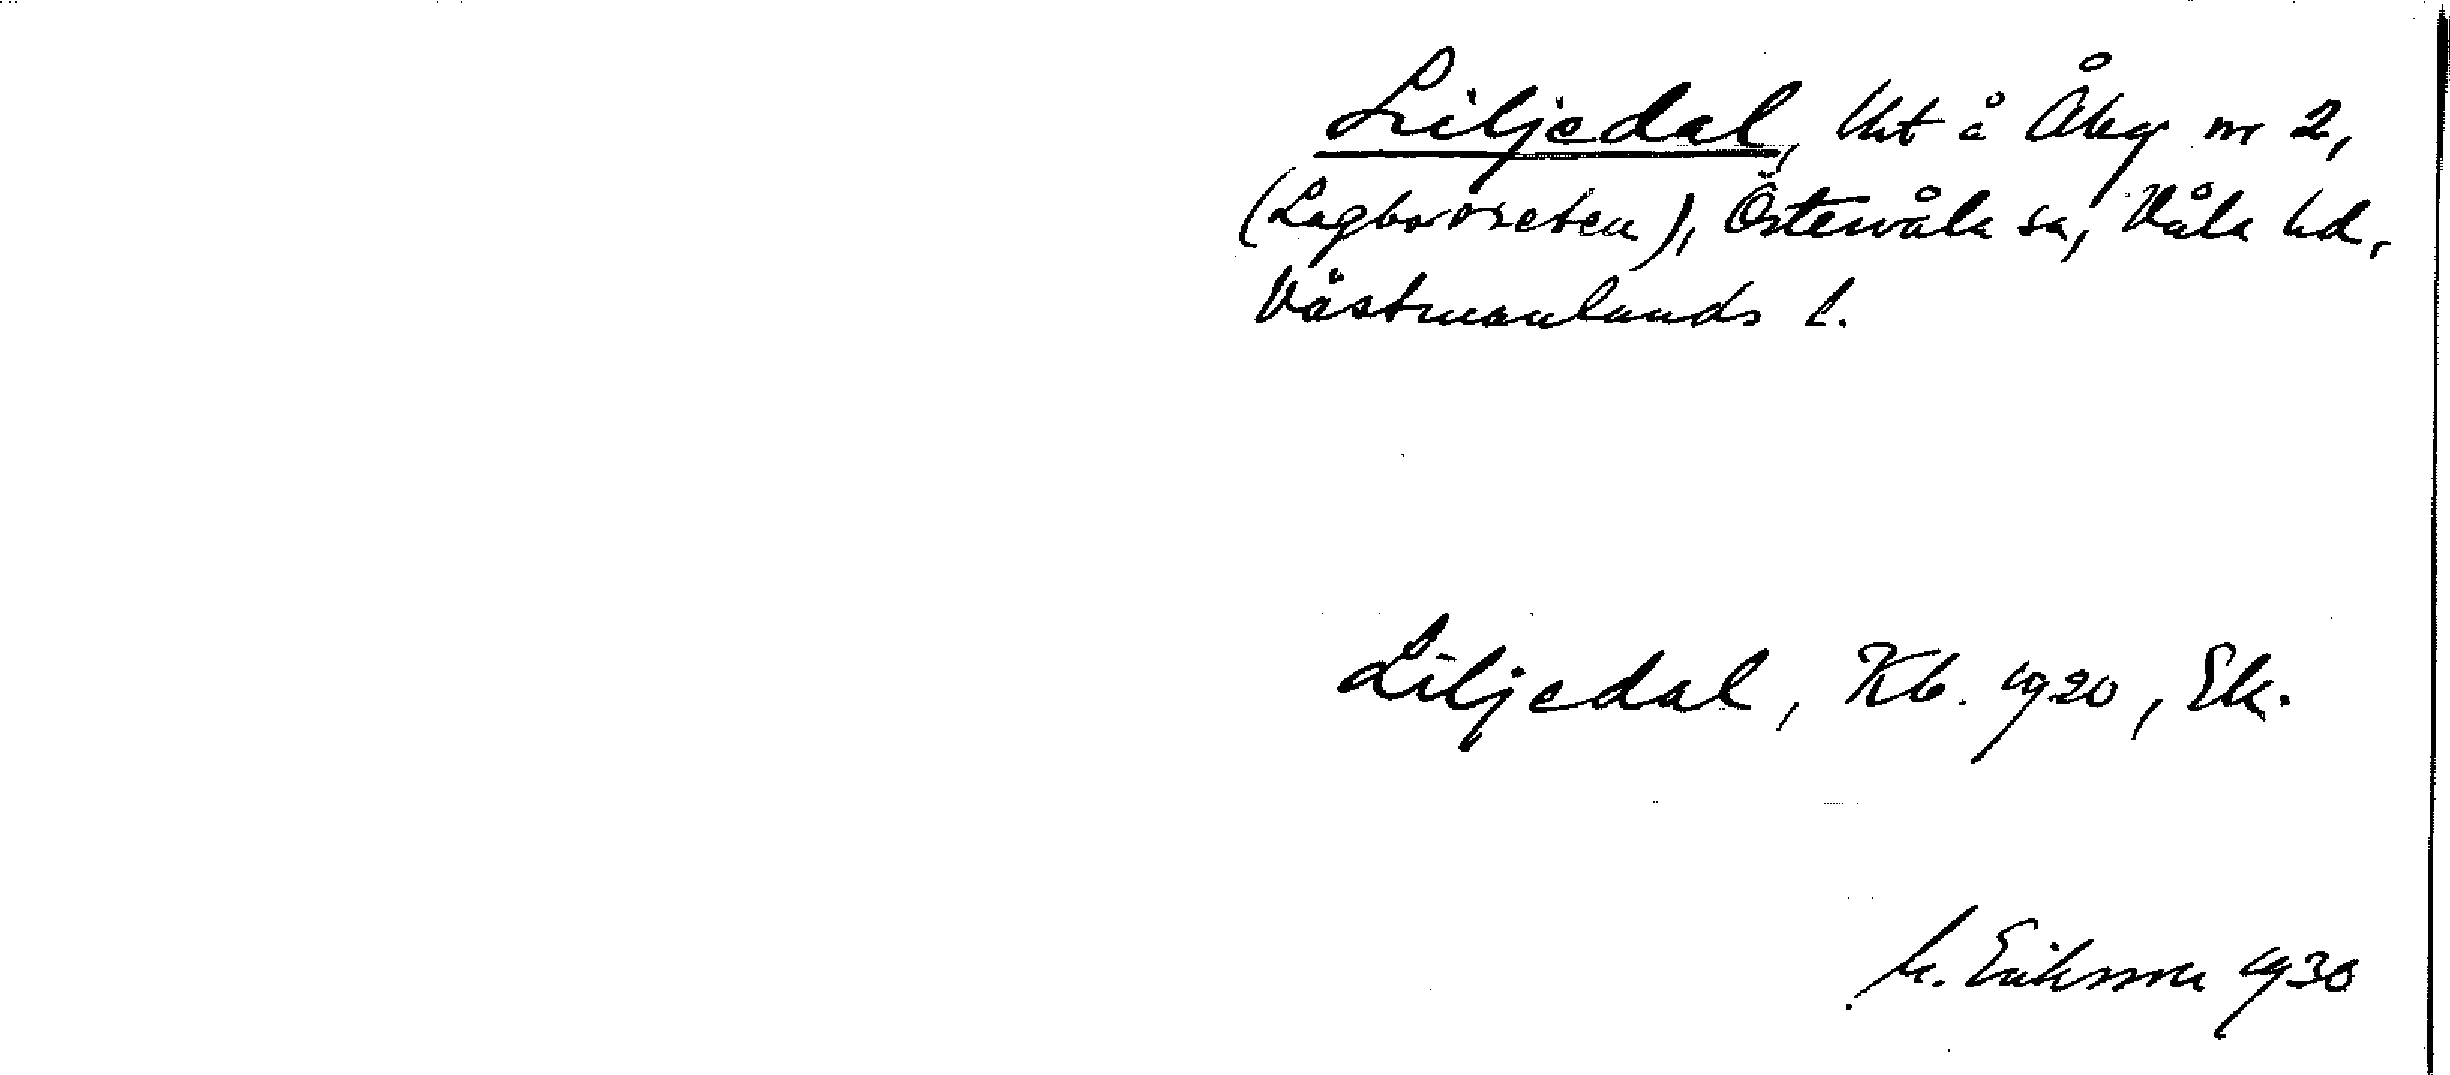 Liljedal, Uht å Åby nr 2,
(Lagboroteten), Östervåla sn, Våla hd,
Västmanlands l.
Liljedal, Kb. 1920, Ek.
M. Eriksson 1930